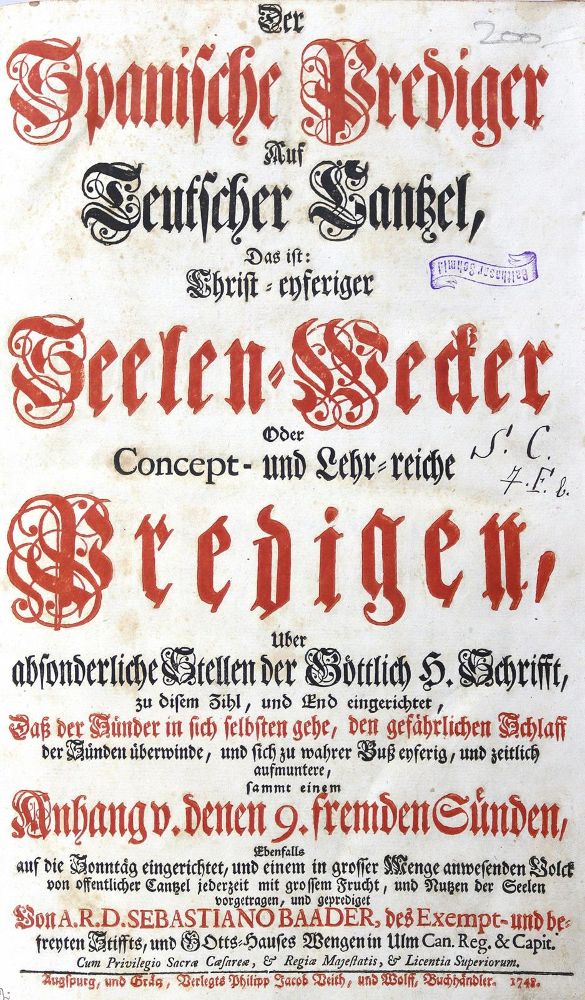 Der
200
Spanische Prediger
Auf
Teutscher Cantzel,
Das ist:
Balthasar Schmid
Christ-eyferiger
Seelen-Wecker
Oder
Concept- und Lehr-reiche
S. C.
7. F. b.
Predigen,
Uber
absonderliche Stellen der Göttlich H. Schrifft,
zu disem Zihl, und End eingerichtet,
Daß der Sünder in sich selbsten gehe, den gefährlichen Schlaff
der Sünden überwinde, und sich zu wahrer Buß eyferig, und zeitlich
aufmuntere,
sammt einem
Anhang v. denen 9. fremden Sünden,
Ebenfalls
auf die Sonntäg eingerichtet, und einem in grosser Menge anwesenden Volck
von offentlicher Cantzel jederzeit mit grossem Frucht, und Nutzen der Seelen
vorgetragen, und geprediget
Von A. R. D. SEBASTIANO BAADER, des Exempt- und be-
freyten Stiffts, und GOtts-Hauses Wengen in Ulm Can. Reg. & Capit.
Cum Privilegio Sacræ Cæsareæ, & Regiæ Majestatis, & Licentia Superiorum.
Augspurg, und Gräz, Verlegts Philipp Jacob Veith, und Wolff, Buchhändler. 1748.